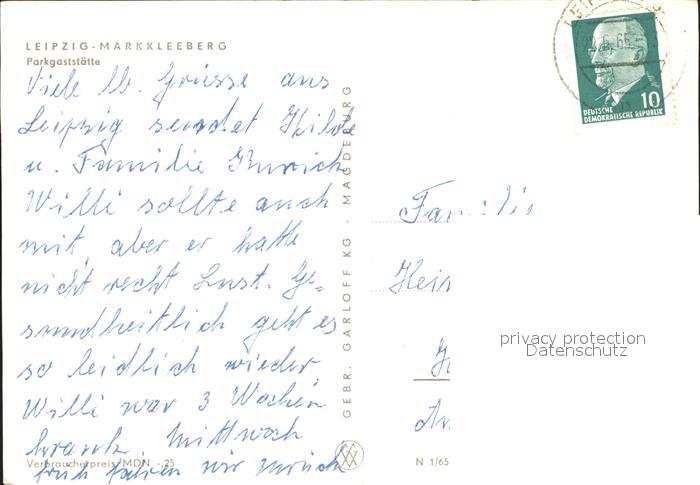 LEIPZIG-MARKKLEEBERG
Parkgaststätte
Viele lb. Grüsse aus
Leipzig sendet Hilde
u. Familie
Willi sollte auch
mit, aber er hatte
nicht recht Lust. Ge=
sundheitlich geht es
so leidlich wieder
Willi war 3 Wochen
krank. Mittwoch
früh fahren wir zurück
Verbraucherpreis MDN -,25
GEBR. GARLOFF KG · MAGDEBURG
10
DEUTSCHE
DEMOKRATISCHE REPUBLIK
Familie
Hein
N 1/65
privacy protection
Datenschutz